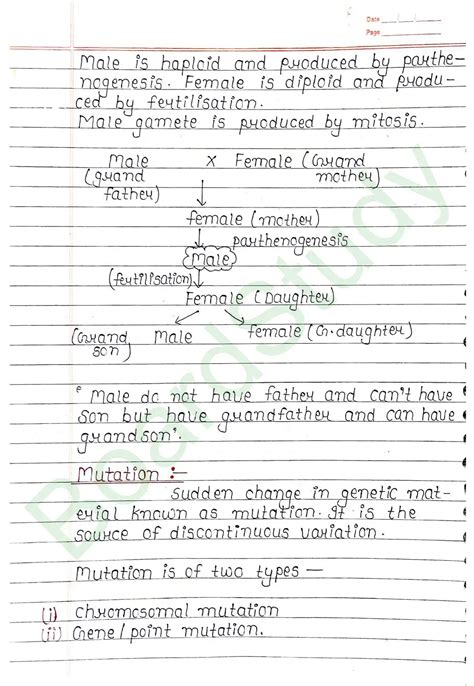 Date
Page
Male is haploid and produced by parthe-
nogenesis. Female is diploid and produ-
ced by fertilisation.
Male gamete is produced by mitosis.
Male x Female (Grand
(grand mother)
father)
female (mother)
parthenogenesis
Male
(fertilisation)
Female (Daughter)
(Grand Male female (Gr. daughter)
son)
'Male do not have father and can't have
son but have grandfather and can have
grandson'.
Mutation :-
Sudden change in genetic mat-
erial known as mutation. It is the
source of discontinuous variation.
Mutation is of two types —
(i) Chromosomal mutation
(ii) Gene/point mutation.
BoardStudy